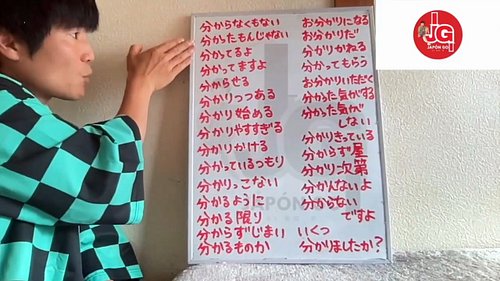 分からなくもない
分かったもんじゃない
分かってるよ
分かってますよ
分からせる
分かりつつある
分かり始める
分かりやすすぎる
分かりかける
分かっているつもり
分かりっこない
分かるように
分かる限り
分からずじまい
分かるものか
お分かりになる
お分かりだ
分かりかねる
分かってもらう
お分かりいただく
分かった気がする
分かった気が
しない
分かりきっている
分からず屋
分かり次第
分かんないよ
分からない
ですよ
いくつ
分かりましたか?
JAPÓN
JG
JAPÓN GO